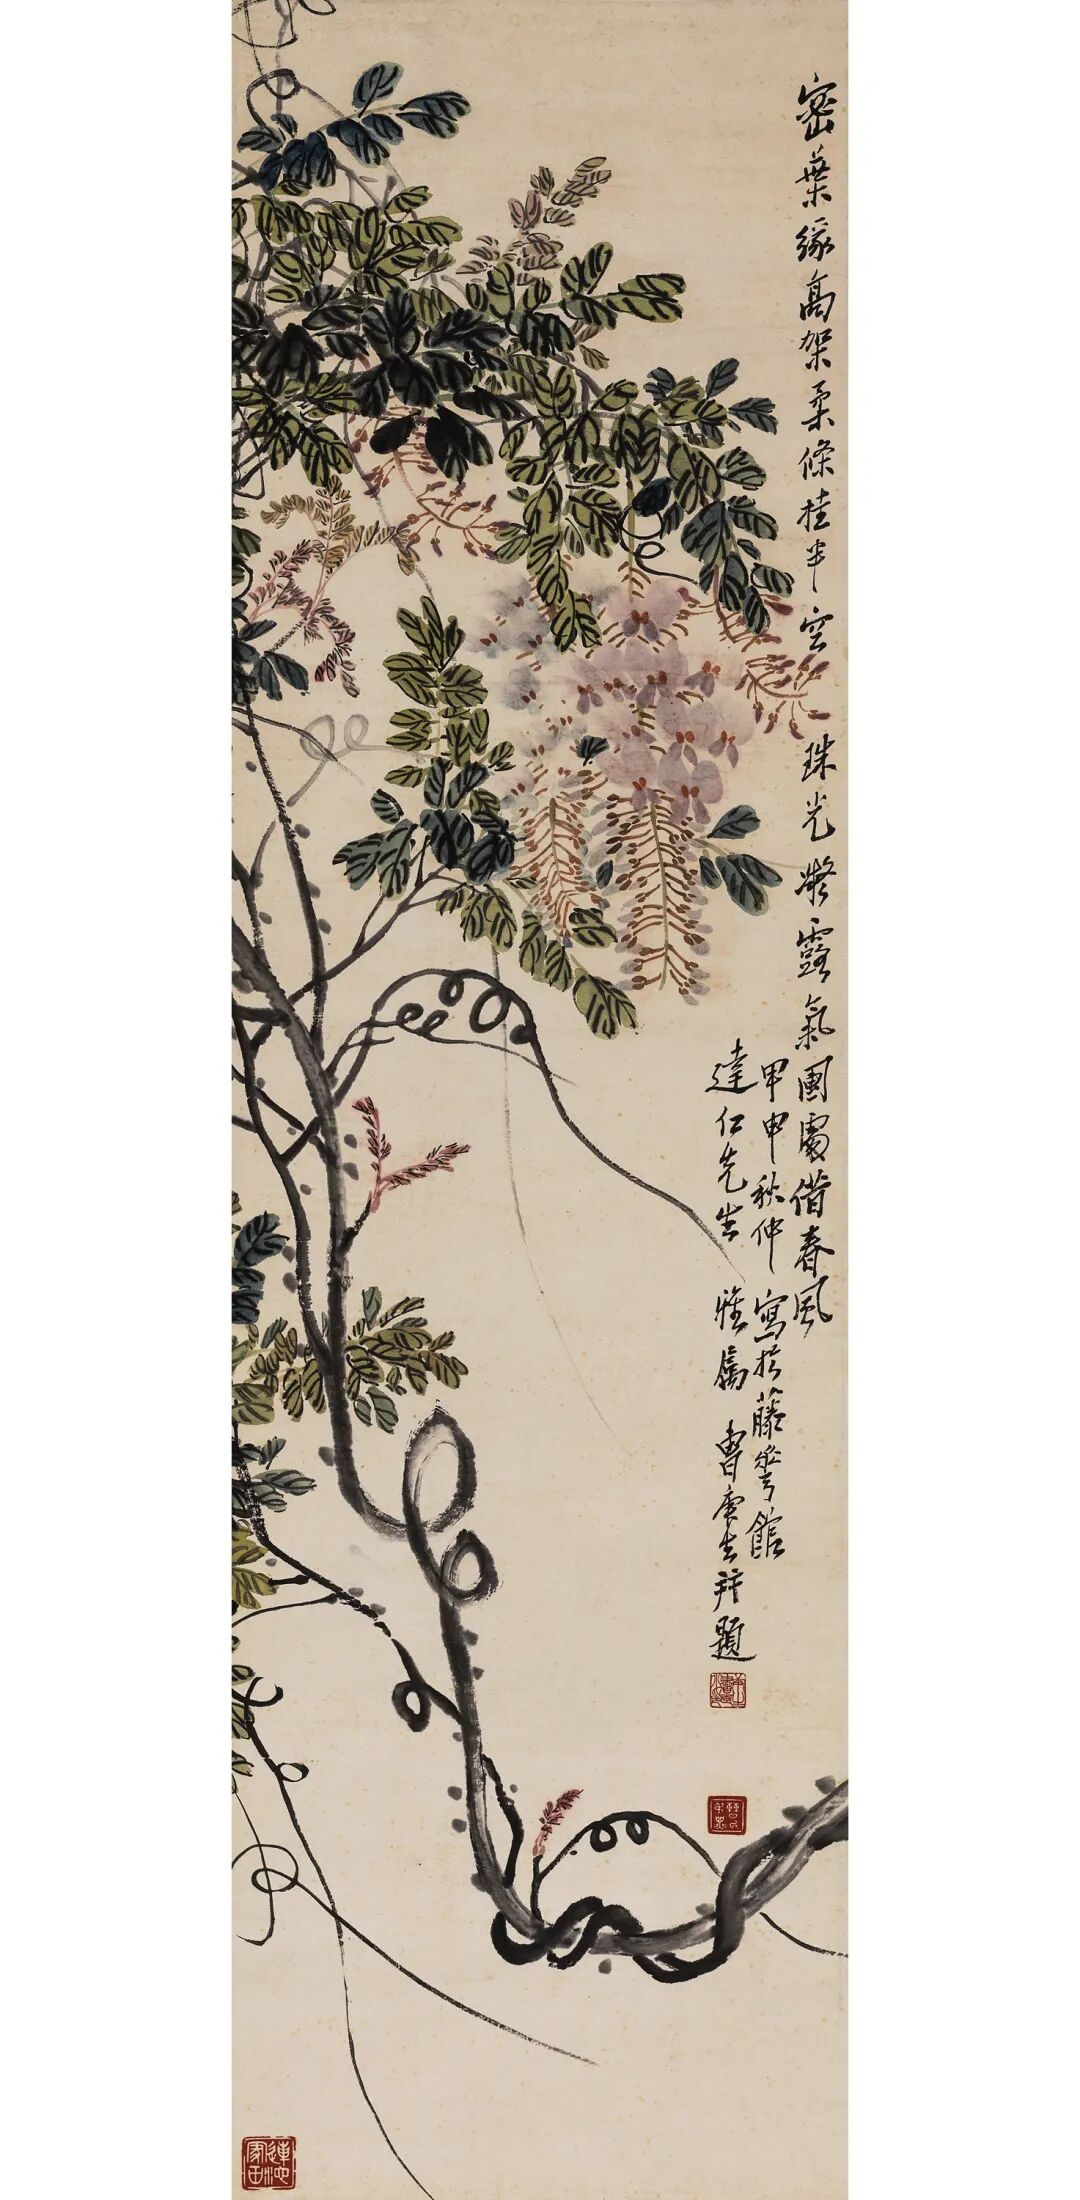 密葉緣高架柔條挂半空珠光凝露氣團處借春風
甲申秋仲寫於藤華館
達仁先生雅屬曹庚生并題